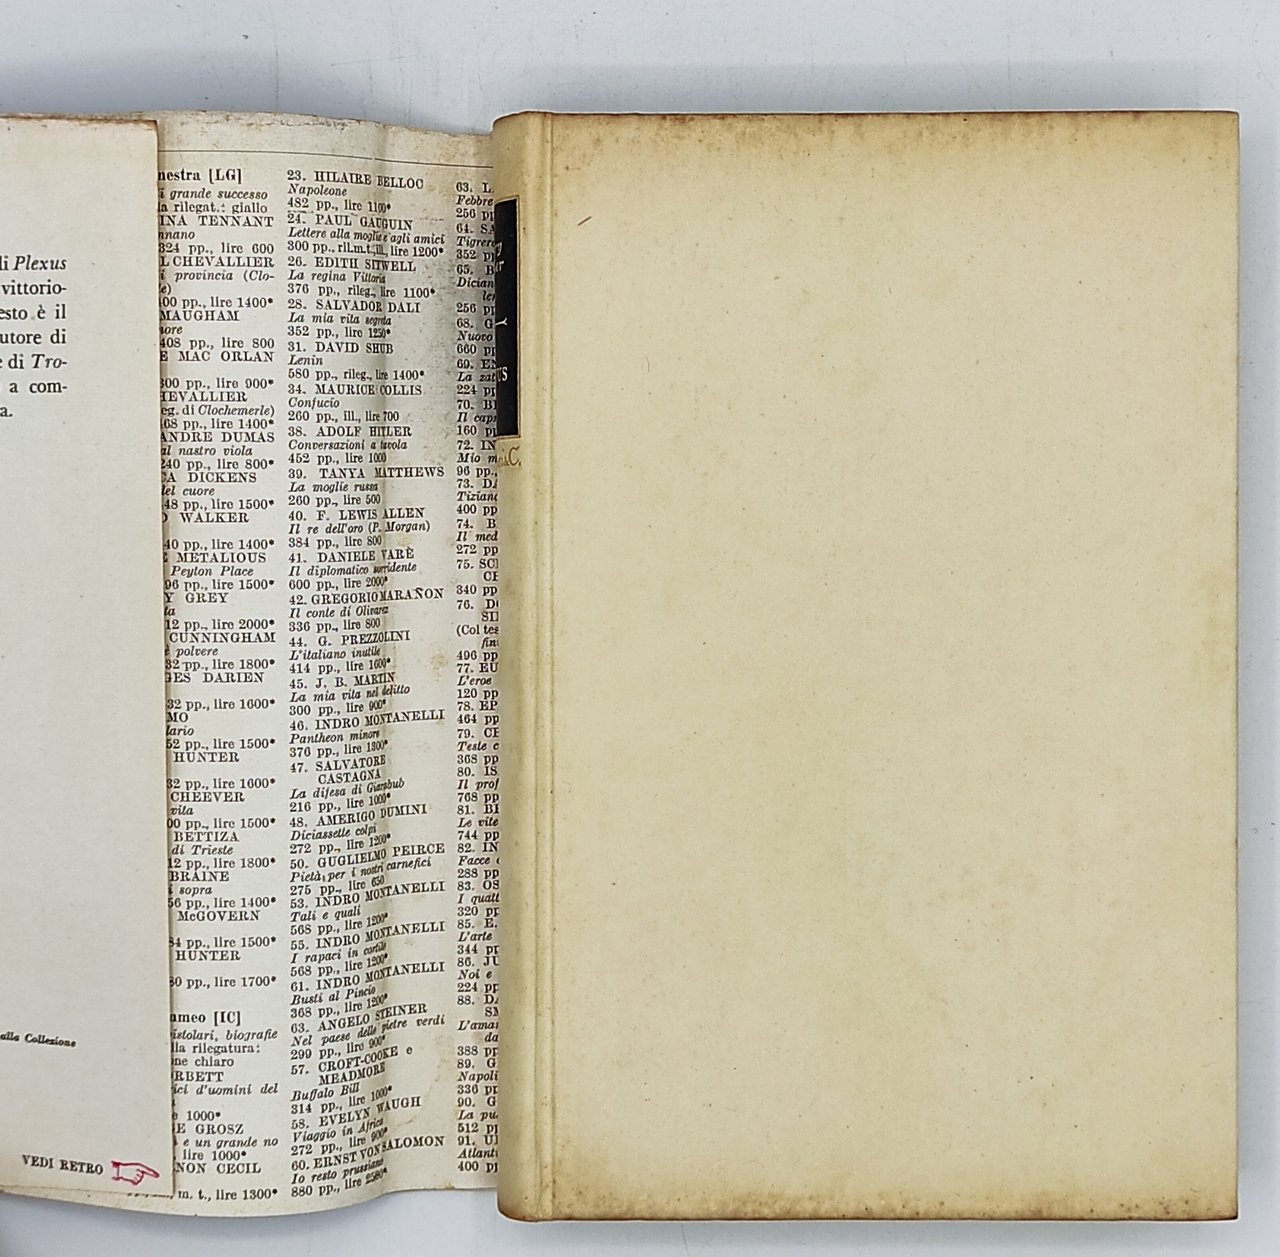 li Plexus
vittorio-
esto è il
utore di
e di Tro-
a com-
a.
alla Collezione
VEDI RETRO
nestra [LG]
i grande successo
la rilegat.: giallo
INA TENNANT
nnano
324 pp., lire 600
L CHEVALLIER
i provincia (Clo-
e)
00 pp., lire 1400*
MAUGHAM
more
408 pp., lire 800
E MAC ORLAN
300 pp., lire 900*
HEVALLIER
eg. di Clochemerle)
68 pp., lire 1400*
ANDRE DUMAS
al nastro viola
240 pp., lire 800*
CA DICKENS
del cuore
48 pp., lire 1500*
D WALKER
40 pp., lire 1400*
E METALIOUS
Peyton Place
96 pp., lire 1500*
Y GREY
la
12 pp., lire 2000*
CUNNINGHAM
e polvere
32 pp., lire 1800*
GES DARIEN
32 pp., lire 1600*
MO
lario
52 pp., lire 1500*
HUNTER
32 pp., lire 1600*
CHEEVER
vita
00 pp., lire 1500*
BETTIZA
di Trieste
12 pp., lire 1800*
BRAINE
i sopra
56 pp., lire 1400*
McGOVERN
84 pp., lire 1500*
HUNTER
80 pp., lire 1700*
ameo [IC]
istolari, biografie
lla rilegatura:
ne chiaro
RBETT
ici d'uomini del
1000*
E GROSZ
e un grande no
lire 1000*
NON CECIL
m. t., lire 1300*
23. HILAIRE BELLOC
Napoleone
482 pp., lire 1100*
24. PAUL GAUGUIN
Lettere alla moglie e agli amici
300 pp., ril.m.t., ill., lire 1200*
26. EDITH SITWELL
La regina Vittoria
376 pp., rileg., lire 1100*
28. SALVADOR DALI
La mia vita segreta
352 pp., lire 1250*
31. DAVID SHUB
Lenin
580 pp., rileg., lire 1400*
34. MAURICE COLLIS
Confucio
260 pp., ill., lire 700
38. ADOLF HITLER
Conversazioni a tavola
452 pp., lire 1000
39. TANYA MATTHEWS
La moglie russa
260 pp., lire 500
40. F. LEWIS ALLEN
Il re dell'oro (P. Morgan)
384 pp., lire 800
41. DANIELE VARÈ
Il diplomatico sorridente
600 pp., lire 2000*
42. GREGORIO MARAÑON
Il conte di Olivarez
336 pp., lire 800
44. G. PREZZOLINI
L'italiano inutile
414 pp., lire 1600*
45. J. B. MARTIN
La mia vita nel delitto
300 pp., lire 900*
46. INDRO MONTANELLI
Pantheon minore
376 pp., lire 1300*
47. SALVATORE
CASTAGNA
La difesa di Giarabub
216 pp., lire 1000*
48. AMERIGO DUMINI
Diciassette colpi
272 pp., lire 1200*
50. GUGLIELMO PEIRCE
Pietà per i nostri carnefici
275 pp., lire 650
53. INDRO MONTANELLI
Tali e quali
568 pp., lire 1200*
55. INDRO MONTANELLI
I rapaci in cortile
568 pp., lire 1200*
61. INDRO MONTANELLI
Busti al Pincio
368 pp., lire 1200*
63. ANGELO STEINER
Nel paese delle pietre verdi
299 pp., lire 900*
57. CROFT-COOKE e
MEADMORE
Buffalo Bill
314 pp., lire 1000*
58. EVELYN WAUGH
Viaggio in Africa
272 pp., lire 900*
60. ERNST VON SALOMON
Io resto prussiano
880 pp., lire 2500*
63. L.
Febbre
256 pp
64. SA
Tigrero
352 pp
65. B
Dician
ler
256 pp
68. G
Nuovo
660 pp
69. EN
La zat
224 pp
70. BI
Il capr
160 pp
72. IN
Mio m
96 pp.,
73. DA
Tiziano
400 pp
74. B
Il med
272 pp
75. SC
CH
340 pp
76. DO
SII
(Col tes
fin
496 pp
77. EU
L'eroe
120 pp
78. EP
464 pp
79. CH
Teste c
368 pp
80. IS
Il prof
768 pp
81. BE
Le vite
744 pp
82. IN
Facce
288 pp
83. OS
I quatt
320 pp
85. E.
L'arte
344 pp
86. JU
Noi e
224 pp
88. DA
SM
L'aman
da
388 pp
89. G
Napoli
336 pp
90. G
La pu
512 pp
91. U
Atlant
400 pp
us
&C.